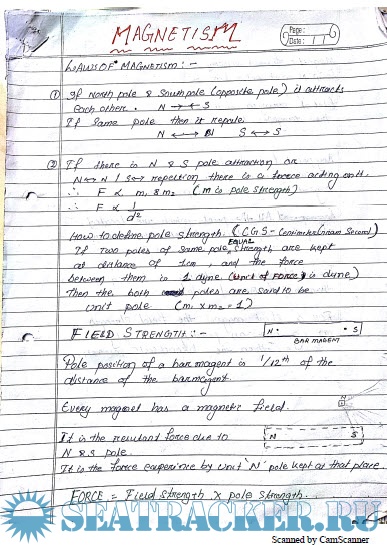 MAGNETISM
Page:
Date: / /
LAWS OF MAGNETISM : -
① If North pole & South pole (opposite pole) it attracts
each others. N → ← S
If Same pole then it repels.
N ← → N S ← → S
② If there is N & S pole attraction or
N ↔ N / S ↔ S repetition there is a force acting on it.
∴ F ∝ m, & m2 (m is pole strength)
∴ F ∝ 1/d²
How to define pole strength. (CGS - Centimeter Gram Second)
EQUAL
If two poles of same pole strength are kept
at distance of 1cm and the force
between them is 1 dyne (Unit of FORCE is dyne)
Then the both poles are said to be
Unit pole (m1 x m2 = 1)
FIELD STRENGTH : -
N • • S
BAR MAGENT
Pole position of a bar magent is 1/12th of the
distance of the barmegent.
Every magnet has a magnetic field.
N
It is the resultant force due to
N S
N & S pole.
It is the force experience by unit 'N' pole kept at that place
FORCE = Field strength x pole strength.
SEATRACKER.RU
Scanned by CamScanner